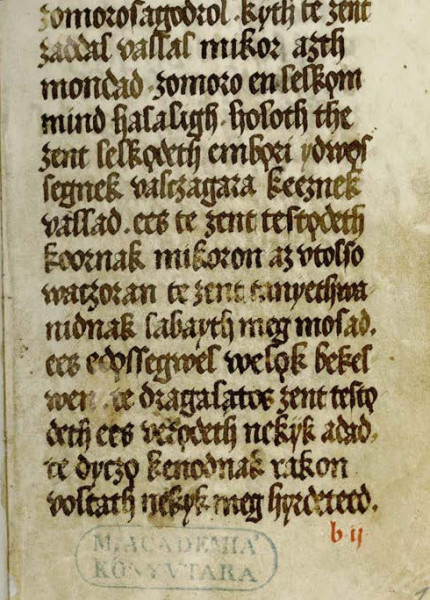 zomorosagodrol. kyth te zent
zaddal vallal mikor azth
mondad. zomoro en lelkom
mind halaligh. holoth the
zent lelkodeth embori ydwos
segnek valtzagara keeznek
vallad. ees te zent testodeth
koornak mikoron az vtolso
waczoran te zent tanyethwa
nidnak labayth meg mosad.
ees edossegwel velok bekel
wen te dragalatos zent testo
deth ees verodeth nekyk adad.
te dyczo kenodnak rakon
voltath nekyk meg hyrdeteed.
b ij
M. ACADEMIA
KÖNYVTARA